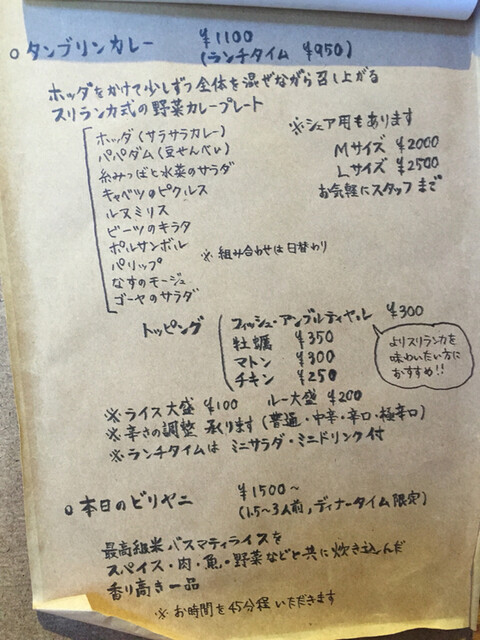 ○ タンブリンカレー ¥1100
(ランチタイム ¥950)
ホッダをかけて少しずつ全体を混ぜながら召し上がる
スリランカ式の野菜カレープレート
ホッダ(サラサラカレー)
パパダム(豆せんべい)
糸みつばと水菜のサラダ
キャベツのピクルス
ルヌミリス
ビーツのキラタ
ポルサンボル
パリップ
なすのモージュ
ゴーヤのサラダ
※シェア用もあります
Mサイズ ¥2000
Lサイズ ¥2500
お気軽にスタッフまで
※ 組み合わせは日替わり
トッピング
フィッシュ・アンブルティヤル ¥300
牡蠣 ¥350
マトン ¥300
チキン ¥250
よりスリランカを
味わいたい方に
おすすめ!!
※ライス大盛 ¥100 ルー大盛 ¥200
※辛さの調整 承ります(普通・中辛・辛口・極辛口)
※ランチタイムは ミニサラダ・ミニドリンク付
○ 本日のビリヤニ ¥1500〜
(1.5〜3人前, ディナータイム限定)
最高級米バスマティライスを
スパイス・肉・魚・野菜などと共に炊き込んだ
香り高き一品
※ お時間を45分程いただきます